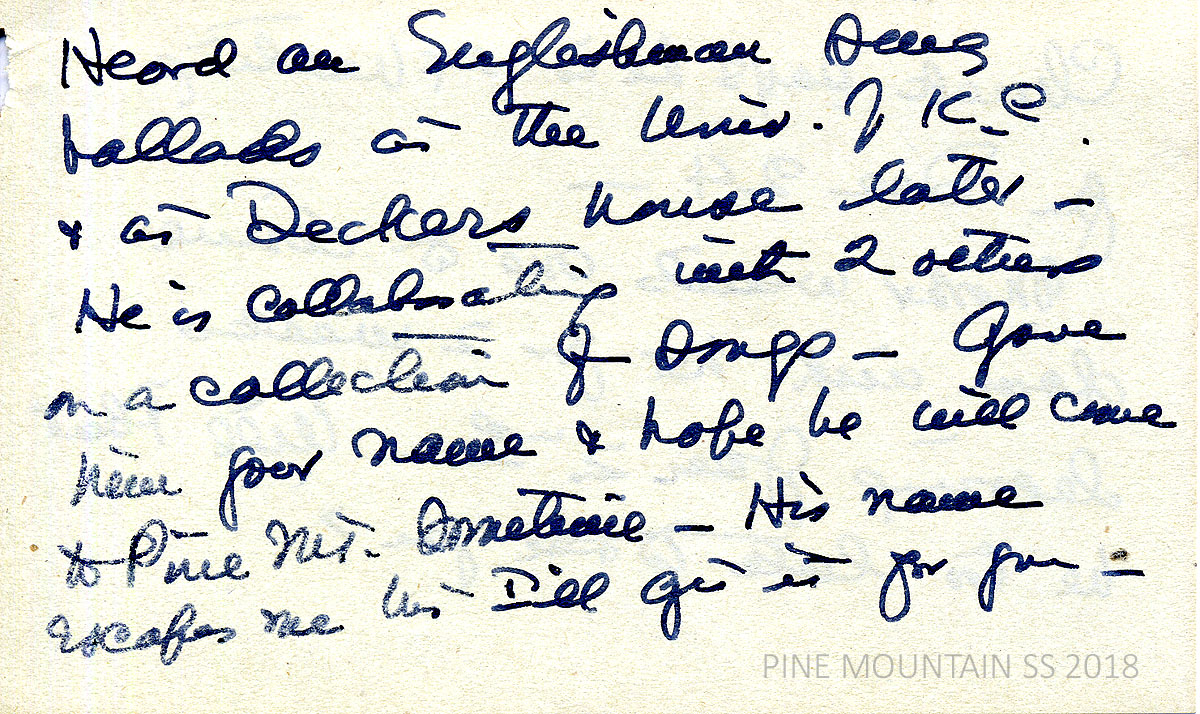 Heard an Englishman sing
ballads at the Univ. of K.C.
& at Deckers house later –
He is collaborating with 2 others
on a collection of songs – Gave
him your name & hope he will come
to Pine Mt. sometime – His name
escapes me but I'll get it for you –
PINE MOUNTAIN SS 2018